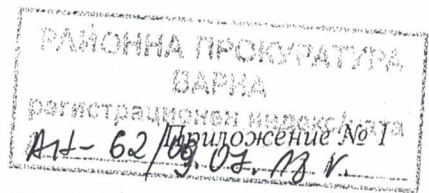 РАЙОННА ПРОКУРАТУРА
ВАРНА
регистрационен индекс/дата
Приложение № 1
62/09.07.18 г.